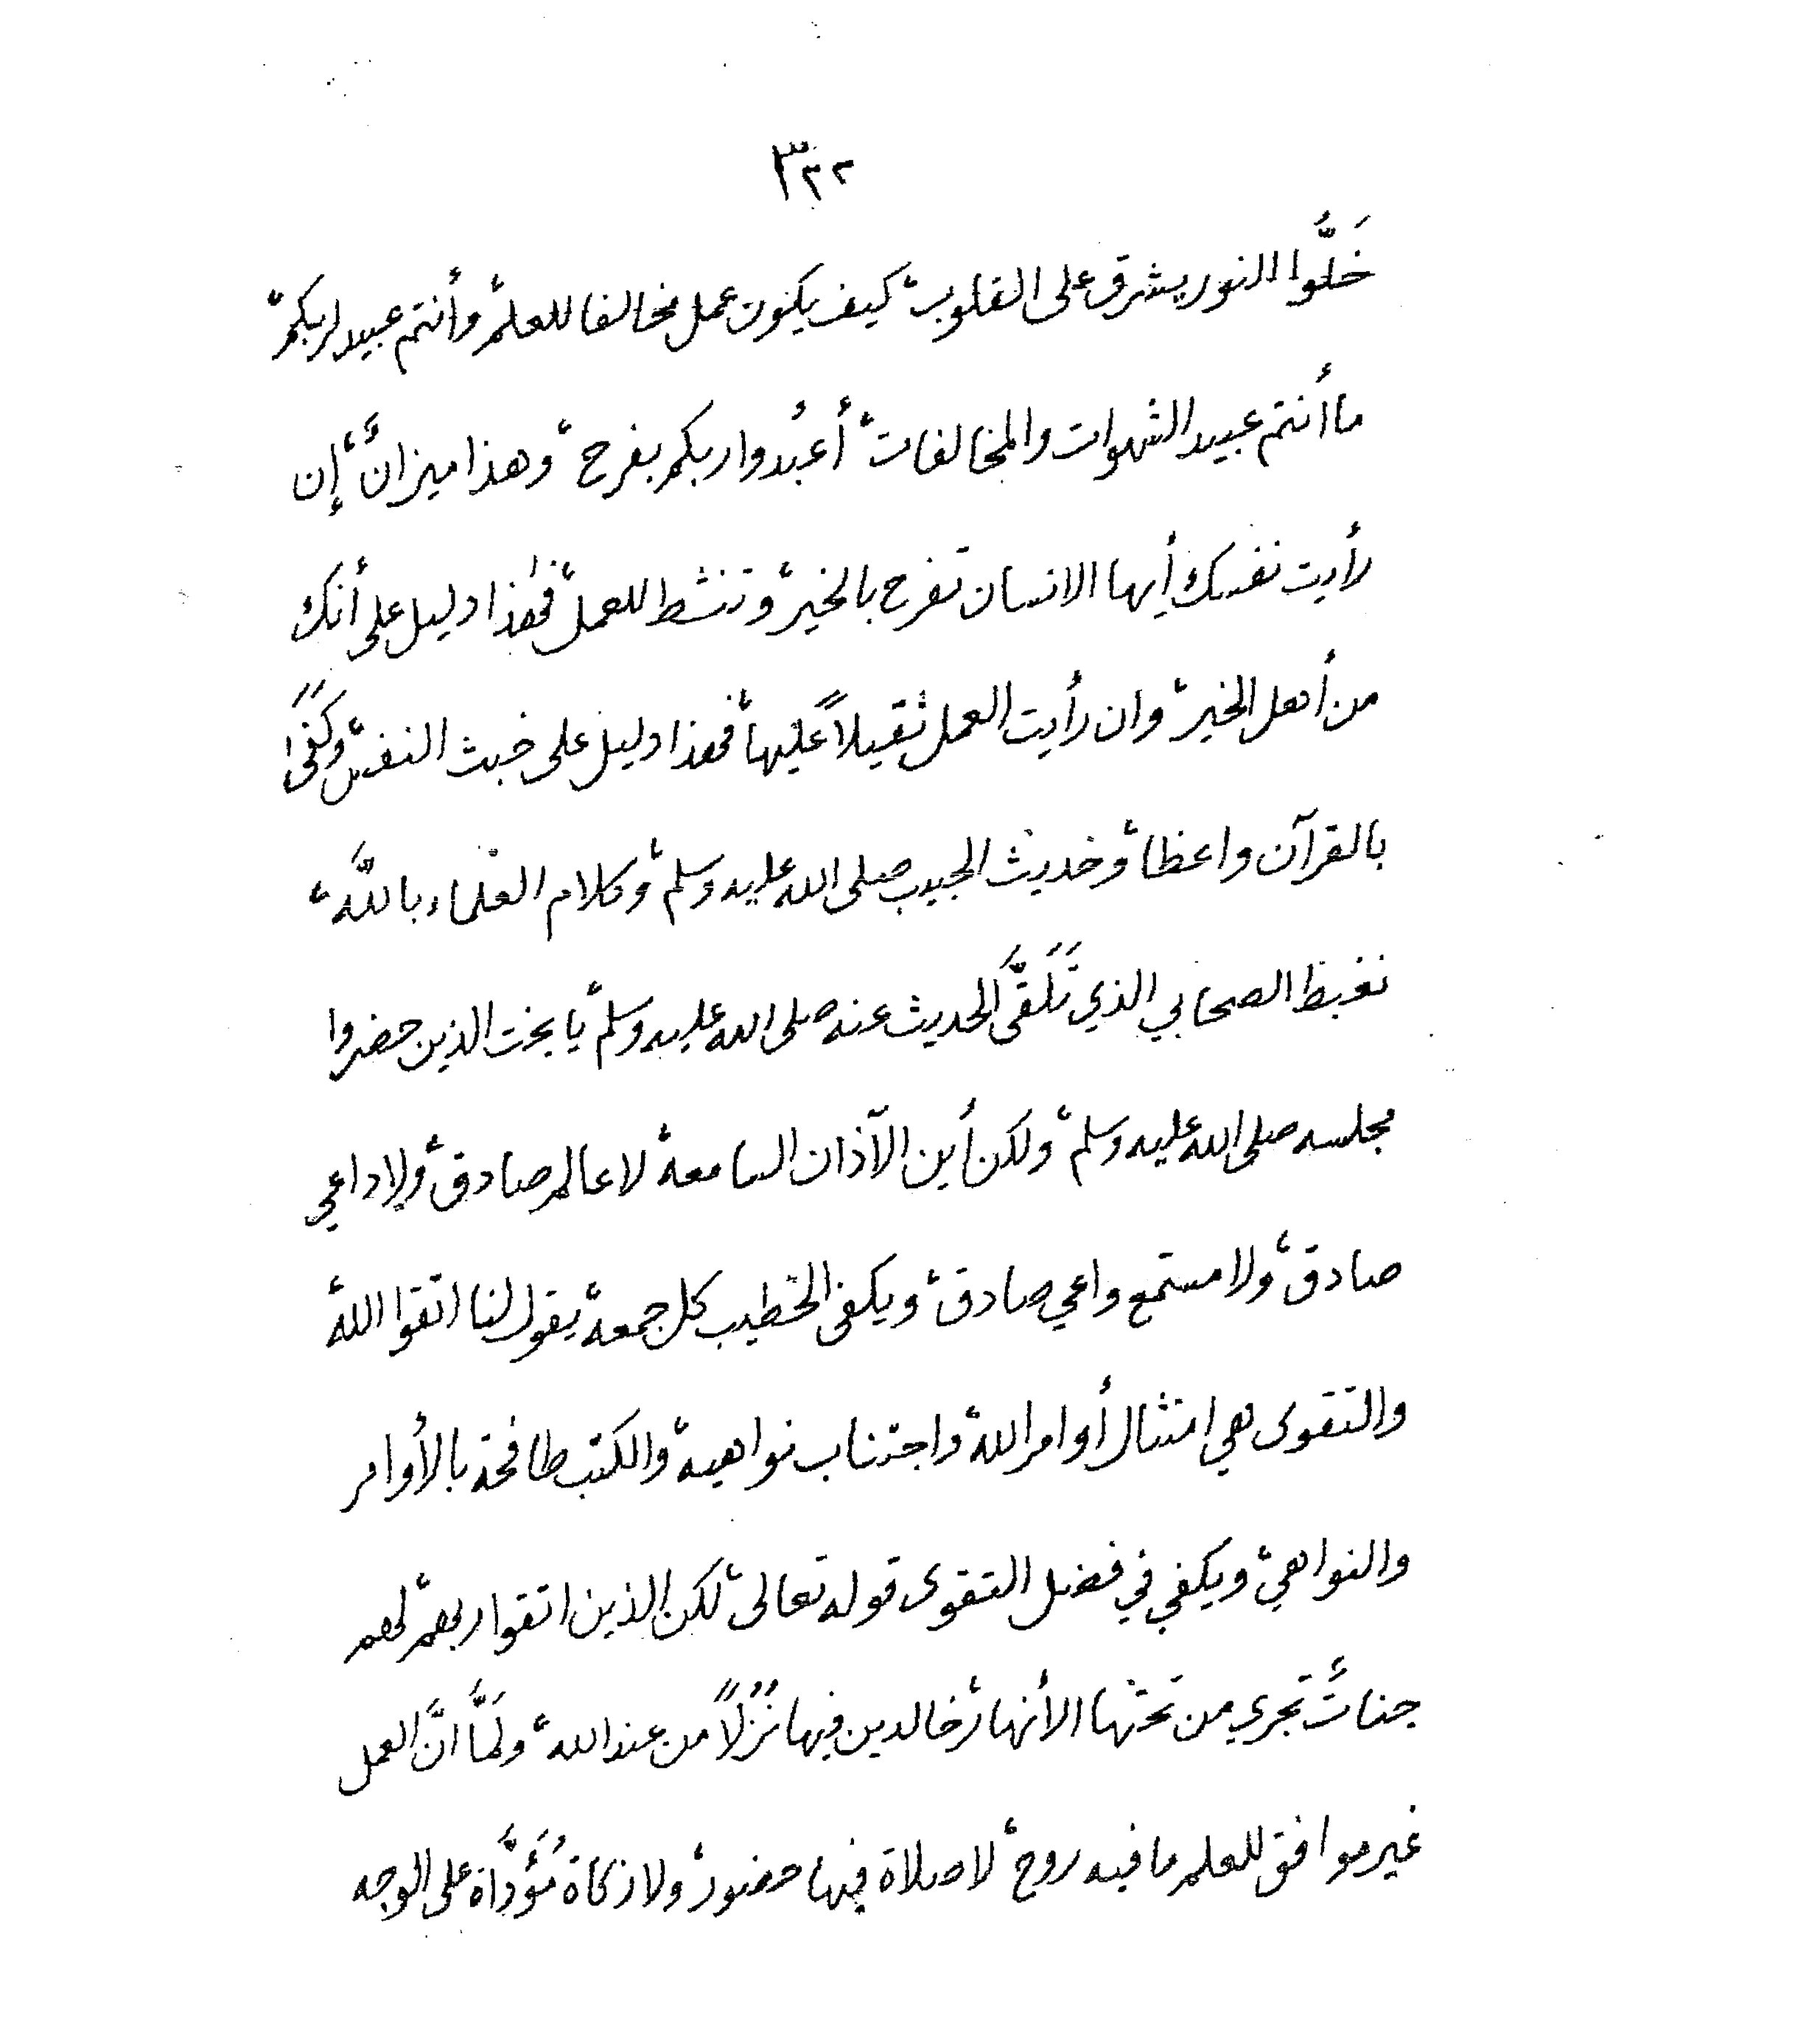 ٣٢٢
خَلُّوا النور يشرق على القلوب، كيف يكون عمل مخالفا للعلم، وأنتم عبيد لربكم،
ما أنتم عبيد الشهوات والمخالفات، أُعبُدوا ربكم بفرح، وهذا ميزانٌ، إن
رأيت نفسك أيها الانسان تفرح بالخير، وتنشط للعمل، فهٰذا دليل على أنك
من أهل الخير، وان رأيت العمل ثقيلاً عليها، فهذا دليل على خبث النفس، وكفىٰ
بالقرآن واعظا، وحديث الحبيب صلى الله عليه وسلم، وكلام العلماء بالله،
نغبط الصحابي الذي تَلَقَّى الحديث عنه صلى الله عليه وسلم، يا بخت الذين حضروا
مجلسه صلى الله عليه وسلم، ولكن أين الآذان السامعة، لا عالم صادق، ولا داعي
صادق، ولا مستمع واعي صادق، ويكفى الخطيب كل جمعة، يقول لنا اتقوا الله،
والتقوى هي امتثال أوامر الله، واجتناب نواهيه، والكتب طافحة بالأوامر
والنواهي، ويكفي في فضل التقوى قوله تعالى، لكن الذين اتقوا ربهم، لهم
جناتٌ تجري من تحتها الأنهار، خالدين فيها نُزُلاً من عند الله، ولَمَّا انَّ العمل
غير موافق للعلم ما فيه روح، لا صلاة فيها حضور، ولا زكاة مُؤَدَّاة على الوجه